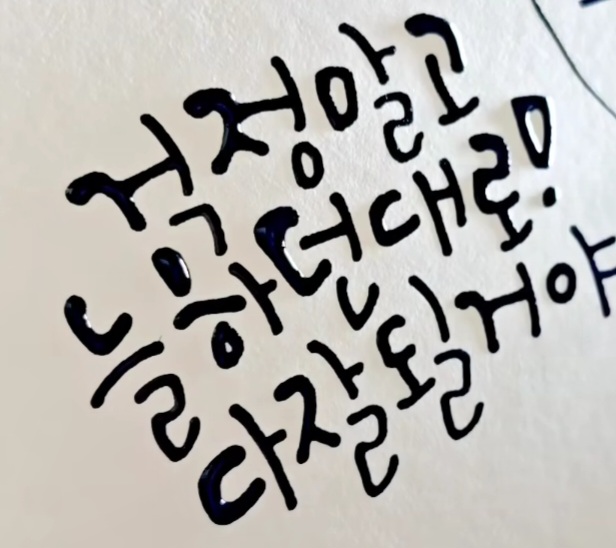 걱정말고
늘 하던대로!
다 잘 될거야